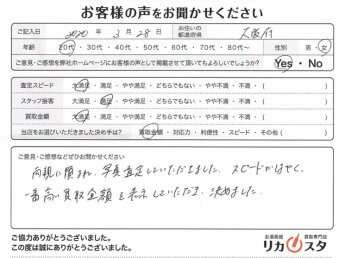 お客様の声をお聞かせください
ご記入日 2020年 3月 28日 お住いの都道府県 大阪府
年齢 20代・30代・40代・50代・60代・70代・80代〜 性別 男・女
ご意見・ご感想を弊社ホームページにお客様の声として掲載させて頂いてもよろしいでしょうか? Yes・No
査定スピード 大満足・満足・やや満足・どちらでもない・やや不満・不満・( )
スタッフ接客 大満足・満足・やや満足・どちらでもない・やや不満・不満・( )
買取金額 大満足・満足・やや満足・どちらでもない・やや不満・不満・( )
当店をお選びいただきました決め手は? 買取金額・対応力・利便性・スピード・その他( )
ご意見・ご感想などぜひお聞かせください
両親に頼まれ、写真査定していただきました。スピードがはやく、
一番高い買取金額を表示していただき、決めました。
ご協力ありがとうございました。
この度は誠にありがとうございました。
お酒高価買取専門店
リカスタ